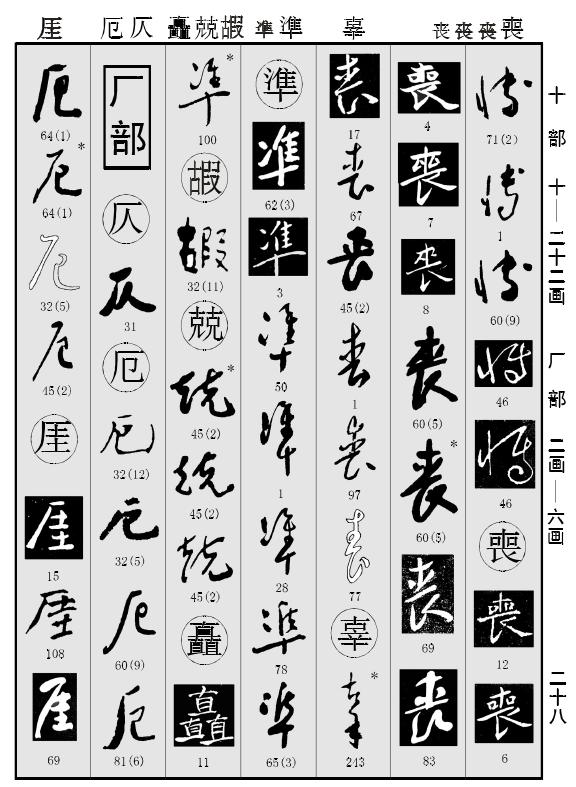 厓 厄仄 矗兢嘏 準準 辜 喪喪喪喪
十部 十—二十二画 厂部 二画—六画 二十八
博 71(2) 博 1 博 60(9) 博 46 博 46 喪 喪 12 喪 6
喪 4 喪 7 喪 8 喪 60(5) 喪* 60(5) 喪 69 喪 83
喪 17 喪 67 喪 45(2) 喪 1 喪 97 喪 77 辜 辜* 243
準 準 62(3) 準 3 準 50 準 1 準 28 準 78 準 65(3)
準* 100 嘏 嘏 32(11) 兢 兢* 45(2) 兢 45(2) 兢 45(2) 矗 矗 11
厂部 仄 仄 31 厄 厄 32(12) 厄 32(5) 厄 60(9) 厄 81(6)
厄 64(1) 厄* 64(1) 厄 32(5) 厄 45(2) 厓 厓 15 厓 108 厓 69